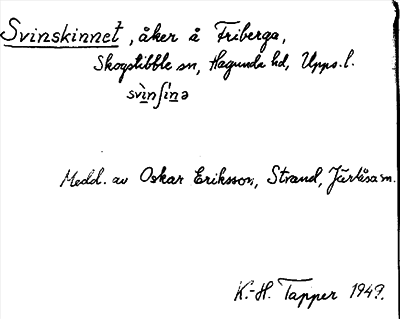 Svinskinnet, åker å Friberga,
Skogstibble sn, Hagunda hd, Upps. l.
svìnʃìnə
Medd. av Oskar Eriksson, Strand, Järlåsa sn.
K.-H. Tapper 1949.